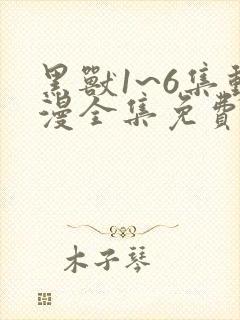 黑獸1~6集動
漫全集免費
木子琴